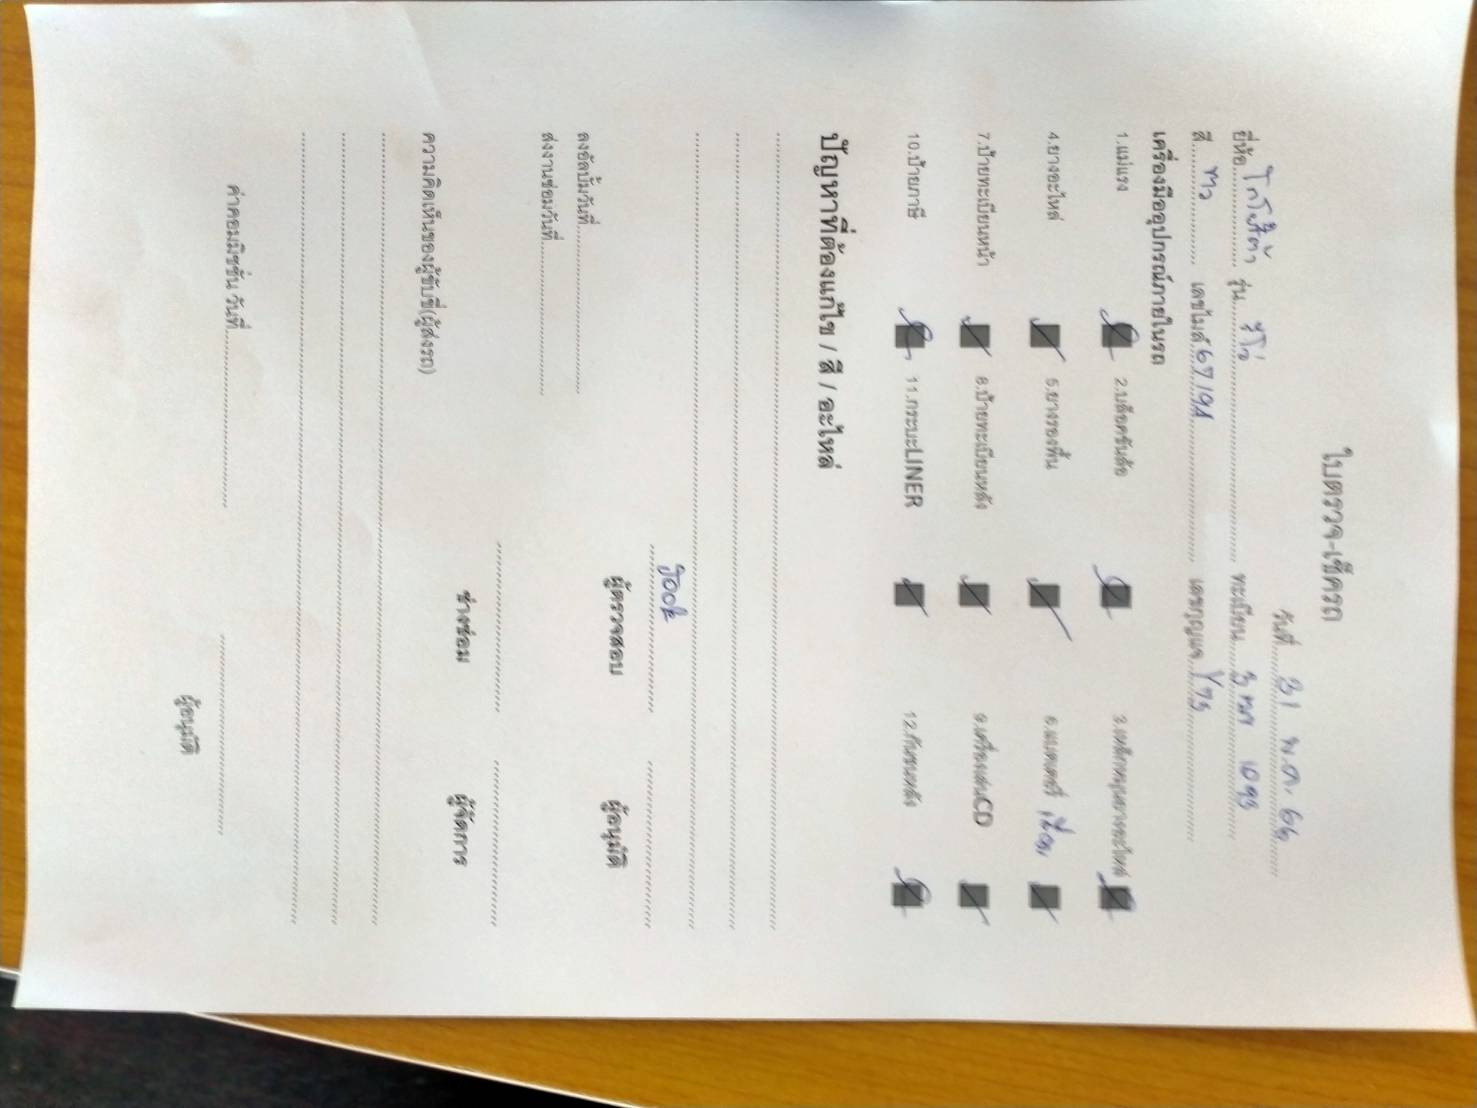 ใบตรวจ-เช็ครถ
วันที่ 31 พ.ค. 66
ยี่ห้อ โตโยต้า รุ่น รีโว่ ทะเบียน 3 1093
สี เลขไมล์ 67194 เลขกุญแจ
เครื่องมืออุปกรณ์ภายในรถ
1.แม่แรง 2.บล็อคขันล้อ 3.เหล็กหมุนยางอะไหล่
4.ยางอะไหล่ 5.ยางรองพื้น 6.แบตเตอรี่
7.ป้ายทะเบียนหน้า 8.ป้ายทะเบียนหลัง 9.เครื่องเล่นCD
10.ป้ายภาษี 11.กระบะLINER 12.กันชนหลัง
ปัญหาที่ต้องแก้ไข / สี / อะไหล่
ลงอัลบั้มวันที่ ผู้ตรวจสอบ ผู้อนุมัติ
ส่งงานซ่อมวันที่
ช่างซ่อม ผู้จัดการ
ความคิดเห็นของผู้ขับขี่(ผู้ส่งรถ)
ค่าคอมมิชชั่น วันที่
ผู้อนุมัติ